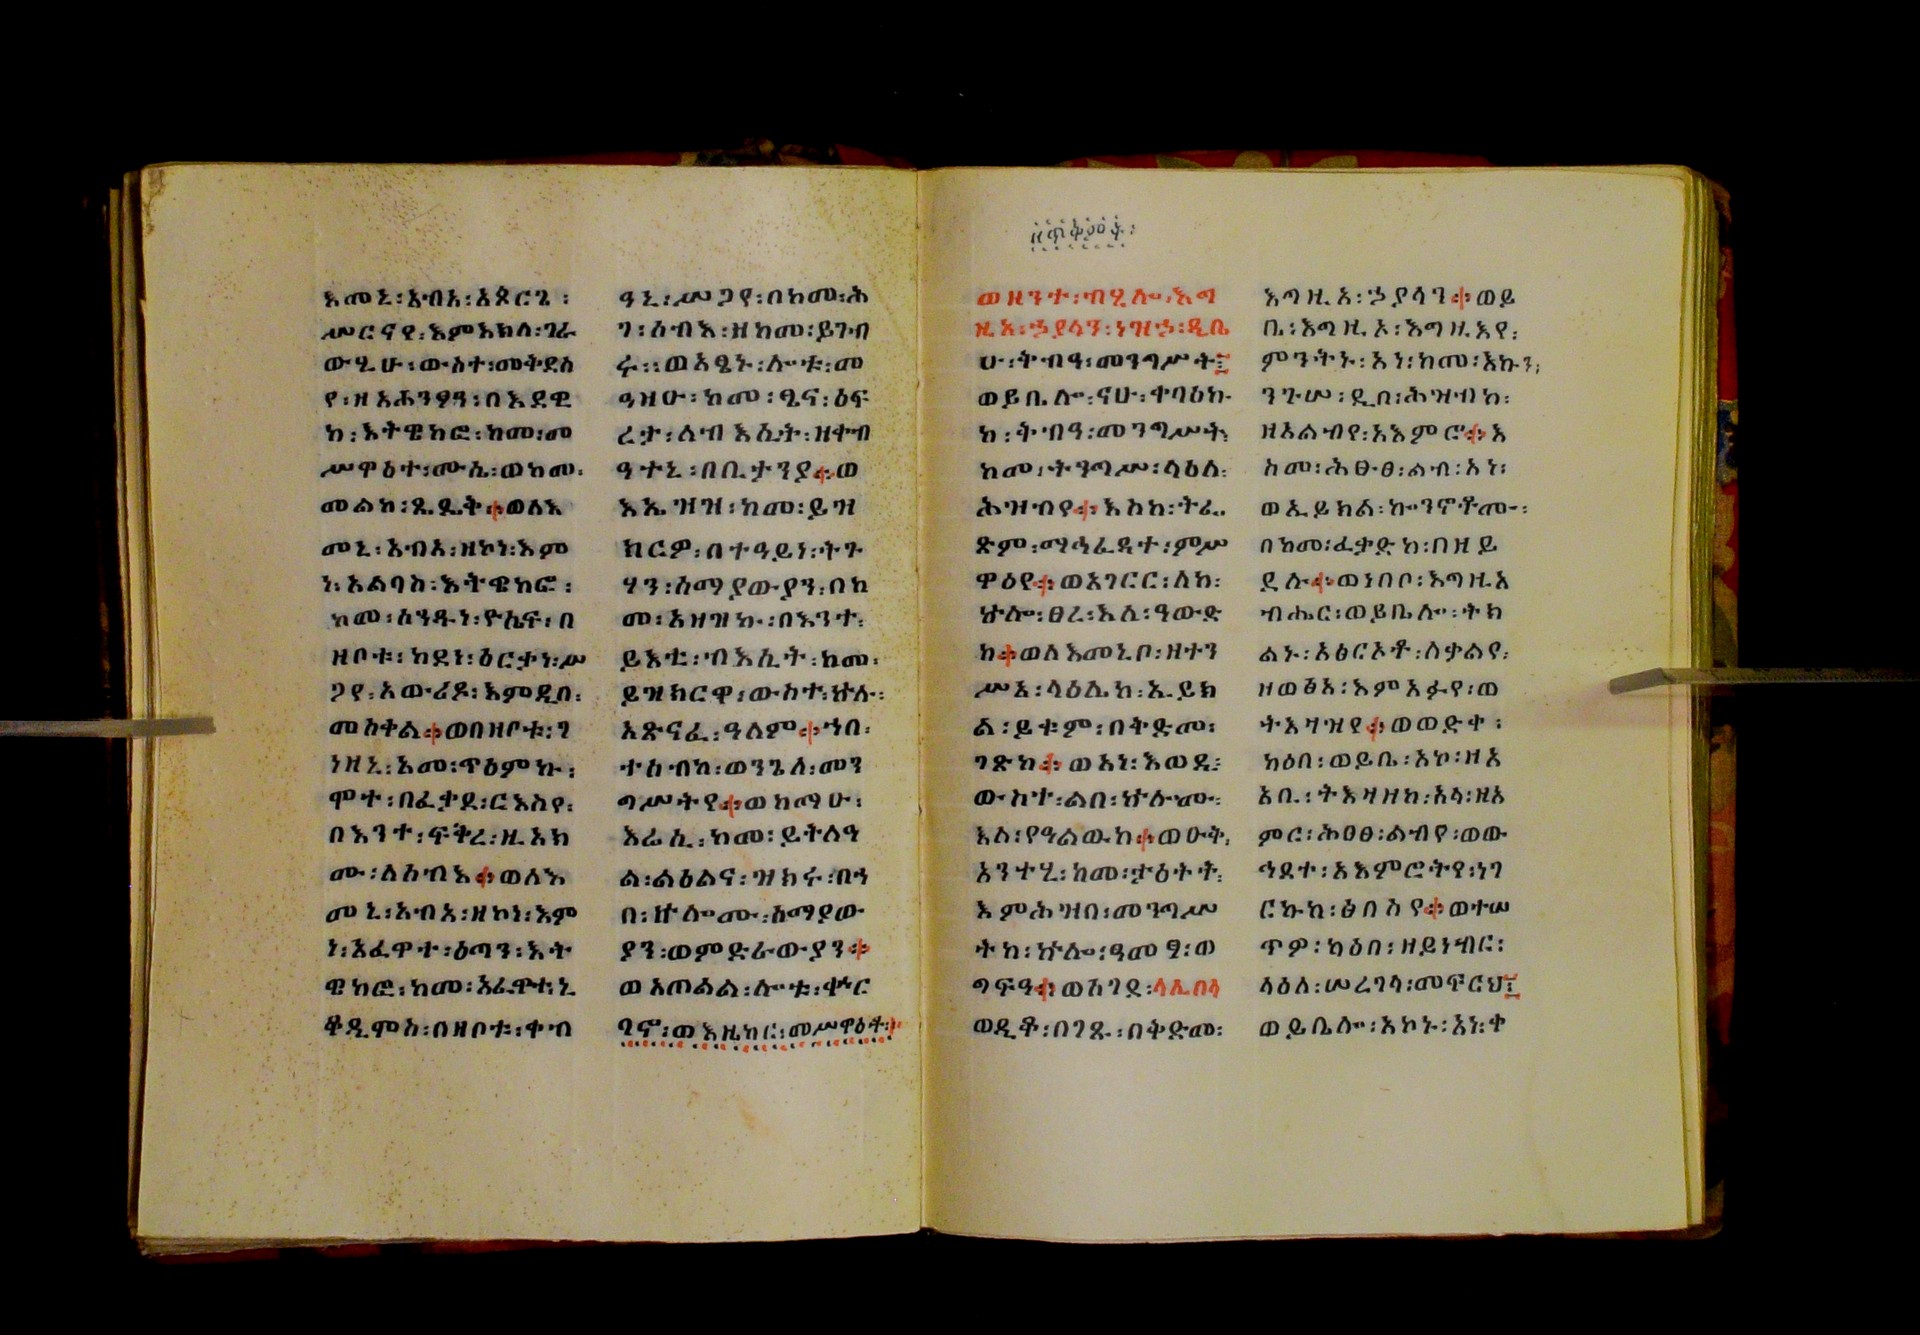 እመኒ፡አብአ፡አጾርጌ፡
ሥርናየ፡እምአክለ፡ገራ
ውሂሁ፡ውስተ፡መቅደስ
የ፡ዘአሕንፃዓ፡በእደዊ
ከ፡እትዌከፎ፡ከመ፡መ
ሥዋዕተ፡ሙሴ፡ወከመ፡
መልከ፡ጼዴቅ፨ወለእ
መኒ፡አብአ፡ዘኮነ፡እም
ነ፡አልባስ፡እትዌከፎ፡
ከመ፡ስንዱነ፡ዮሴፍ፡በ
ዘቦቱ፡ከደነ፡ዕርቃነ፡ሥ
ጋየ፡አውሪዶ፡እምዲበ፡
መስቀል፨ወበዘቦቱ፡ገ
ነዘኒ፡አመ፡ጥዕምኩ፡
ሞተ፡በፈቃደ፡ርእስየ፡
በእንተ፡ፍቅረ፡ዚአክ
ሙ፡ለሰብእ፨ወለእ
መኒ፡አብአ፡ዘኮነ፡እም
ነ፡አፈዋተ፡ዕጣን፡እት
ዌከፎ፡ከመ፡አፈዋተ፡ኒ
ቆዲሞስ፡በዘቦቱ፡ቀብ
ዓኒ፡ሥጋየ፡በከመ፡ሕ
ገ፡ሰብእ፡ዘከመ፡ይገብ
ሩ፡፡ወአፄኑ፡ሎቱ፡መ
ዓዘሁ፡ከመ፡ፄና፡ዕፍ
ረታ፡ለብእሲት፡ዘቀብ
ዓተኒ፡በቢታንያ፨ወ
እኤዝዝ፡ከመ፡ይዝ
ክርዎ፡በተዓይነ፡ትጉ
ሃን፡ሰማያውያን፡በከ
መ፡አዘዝኩ፡በእንተ፡
ይእቲ፡ብእሲት፡ከመ፡
ይዝክርዋ፡ውስተ፡ኵሉ፡
አጽናፈ፡ዓለም፨ኀበ፡
ተሰብከ፡ወንጌለ፡መን
ግሥትየ፨ወክማሁ፡
እሬሲ፡ከመ፡ይትለዓ
ል፡ልዕልና፡ዝክሩ፡በኀ
በ፡ኵሎሙ፡ሰማያው
ያን፡ወምድራውያን፨
ወአጠልል፡ሎቱ፡ቀኅር
ባኖ፡ወእዜከር፡መሥዋዕቶ፨
ወዘንተ፡ብሂሎ፡እግ
ዚአ፡ኃያላን፡ነዝኃ፡ዲቤ
ሁ፡ቅብዓ፡መንግሥት፤
ወይቤሎ፡ናሁ፡ቀባዕኩ
ከ፡ቅብዓ፡መንግሥት፡
ከመ፡ትንግሥ፡ላዕለ፡
ሕዝብየ፨እስከ፡ትፌ
ጽም፡ማኅፈዳተ፡ምሥ
ዋዕየ፨ወአገርር፡ለከ፡
ኵሎ፡ፀረ፡እለ፡ዓውድ
ከ፨ወለእመኒቦ፡ዘተን
ሥአ፡ላዕሌከ፡ኢይክ
ል፡ይቁም፡በቅድመ፡
ገጽከ፨ወአነ፡እወዲ፡
ውስተ፡ልበ፡ኵሉሙ፡
እለ፡የዓልዉከ፨ወሁቅ፡
አንተሂ፡ከመ፡ታዕትት፡
እምሕዝበ፡መንግሥ
ትከ፡ኵሎ፡ዓመፃ፡ወ
ግፍዓ፨ወሰገደ፡ላሊበላ
ወዲቆ፡በገጹ፡በቅድመ፡
እግዚአ፡ኃያላን፨ወይ
ቤ፡እግዚኦ፡እግዚእየ፡
ምንትኑ፡አነ፡ከመ፡እኩን፡
ንጉሠ፡ዲበ፡ሕዝብከ፡
ዘአልብየ፡አእምሮ፨እ
ስመ፡ሕፀፀ፡ልብ፡አነ፡
ወኢይክል፡ኰንኖቶሙ፡
በከመ፡ፈቃድከ፡በዘይ
ደሉ፨ወነበቦ፡እግዚአ
ብሔር፡ወይቤሎ፡ትክ
ልኑ፡አፅርኦቶ፡ለቃልየ፡
ዘወፅአ፡እምአፉየ፡ወ
ትእዛዝየ፨ወወድቀ፡
ካዕበ፡ወይቤ፡አኮ፡ዘእ
አቢ፡ትእዛዘከ፡አላ፡ዘአ
ምር፡ሕፀፀ፡ልብየ፡ወው
ኅደተ፡አእምሮትየ፡ነገ
ርኩከ፡ፅበስየ፨ወተሠ
ጥዎ፡ካዕበ፡ዘይነብር፡
ላዕለ፡ሠረገላ፡መፍርህ፤
ወይቤሎ፡አኮኑ፡አነ፡ቀ